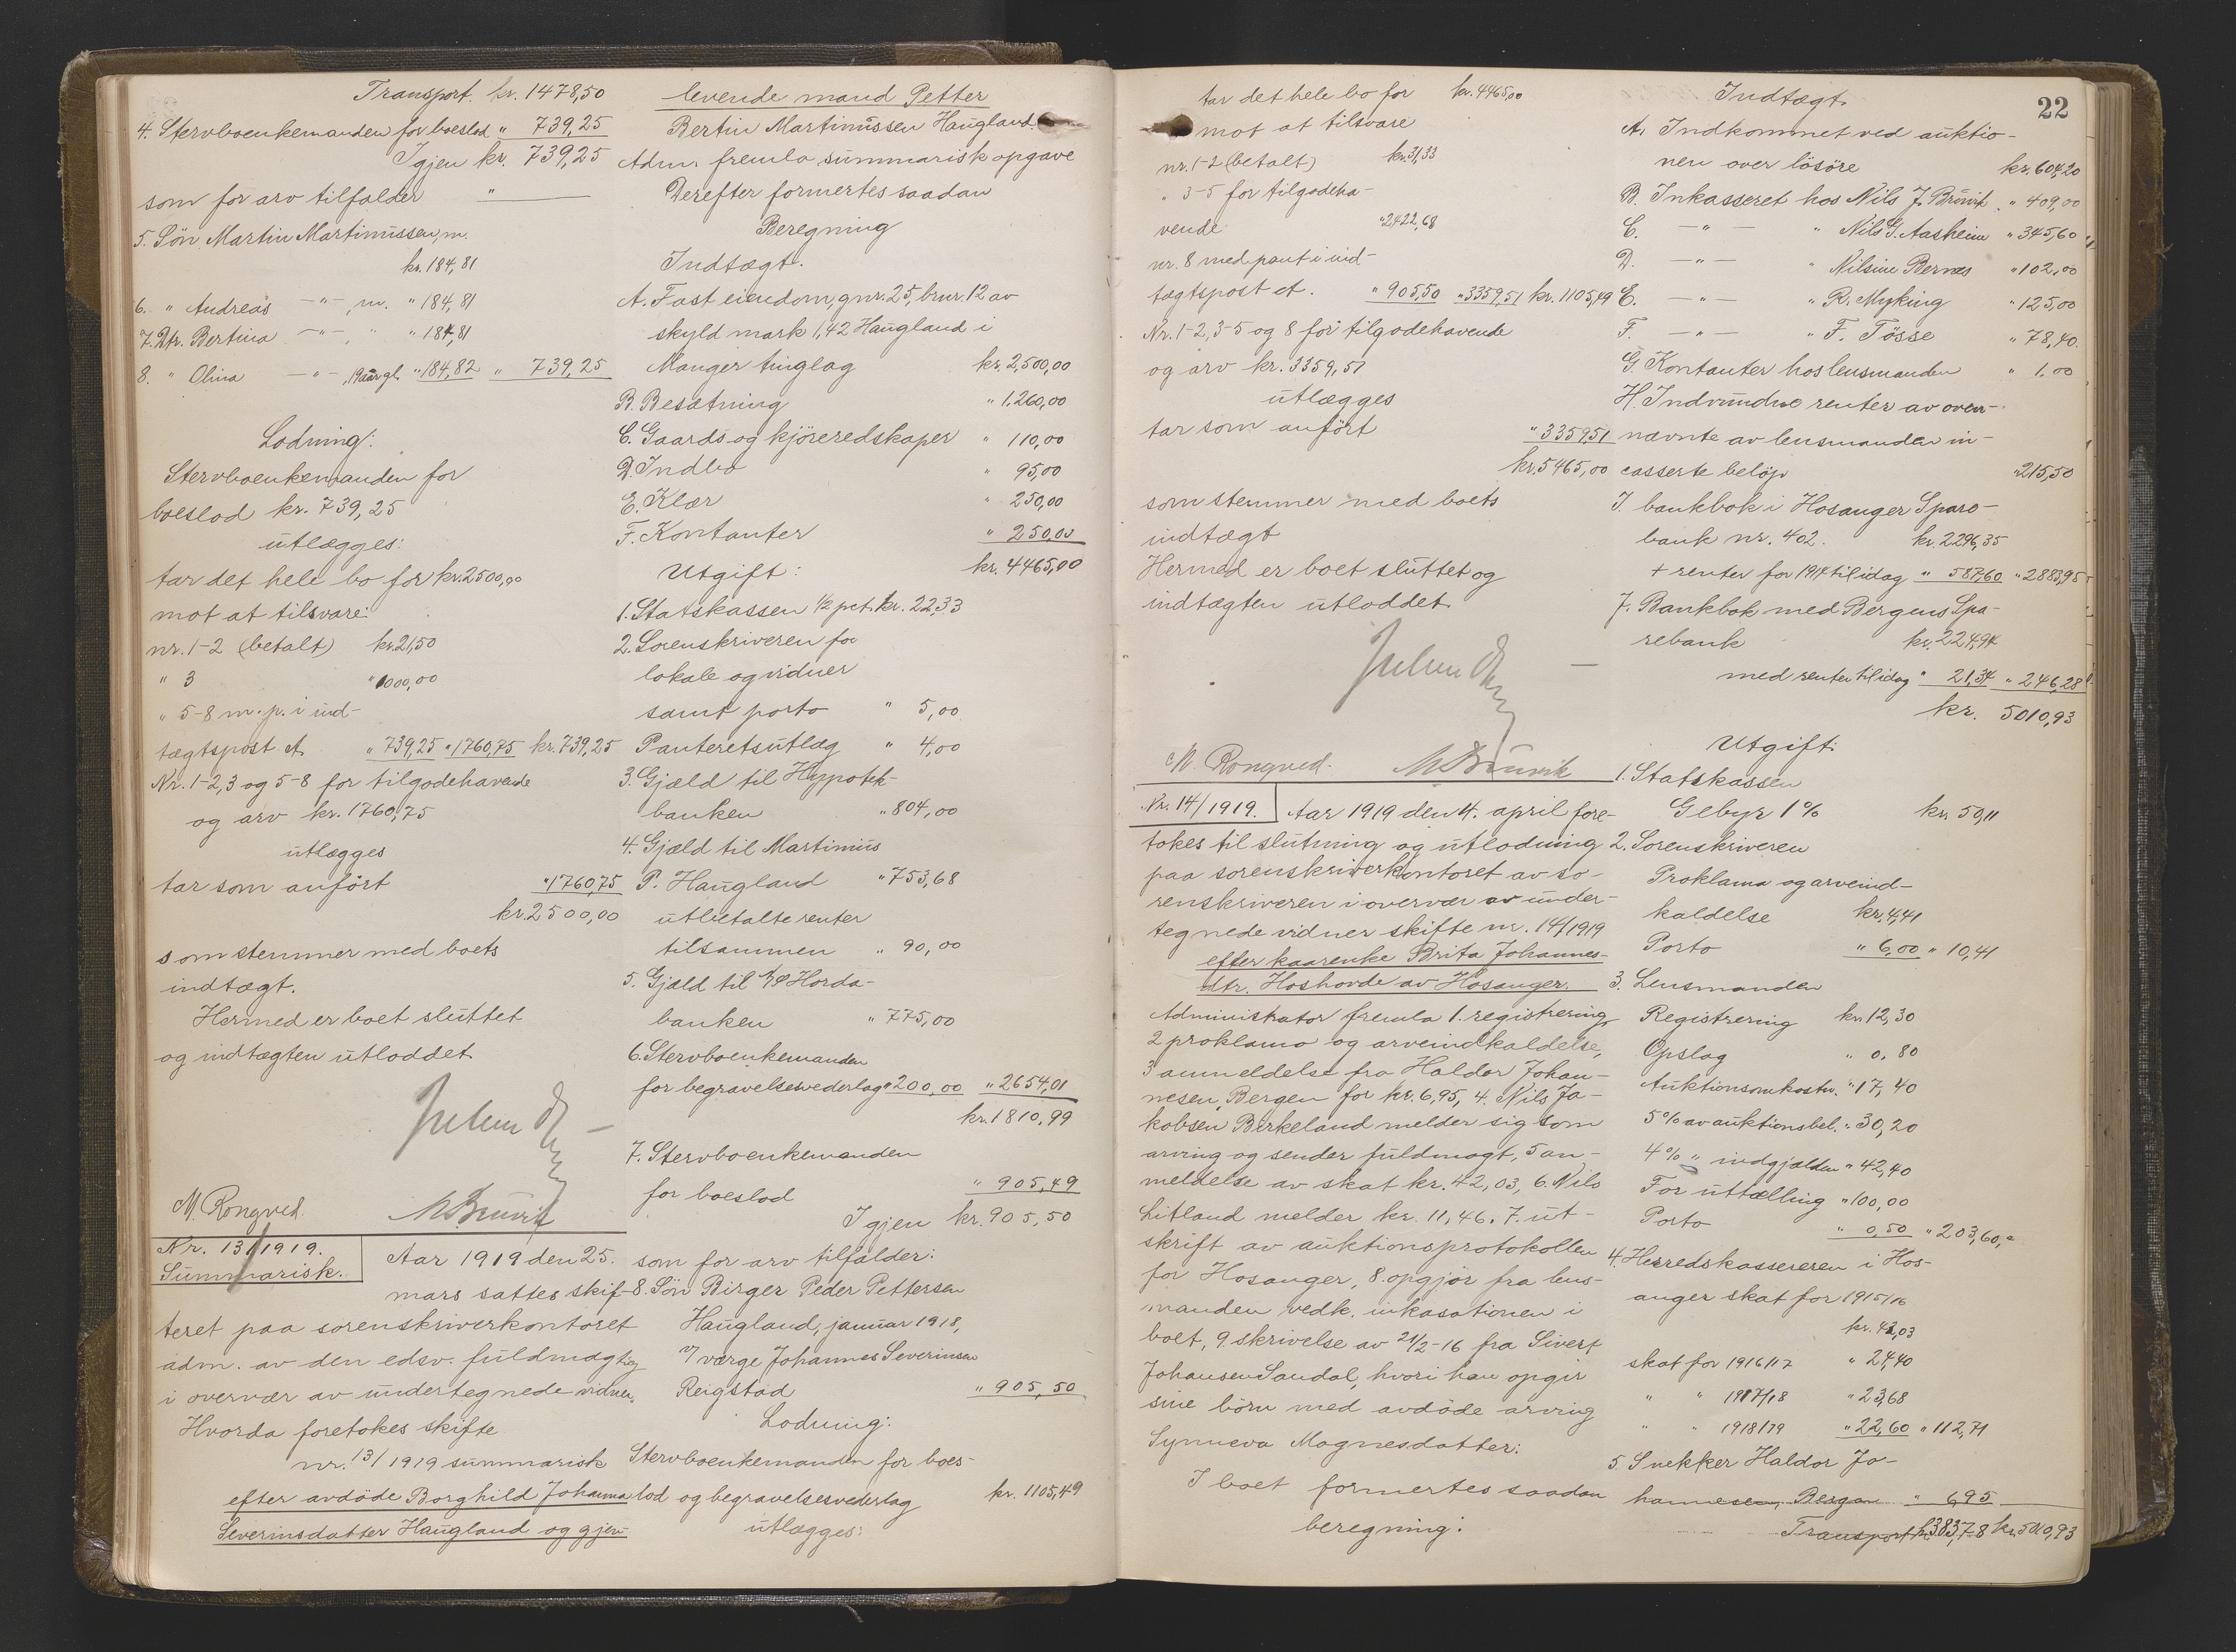 Transport. kr. 1478,50
4. Stervboenkemanden for boeslod " 739,25
Igjen kr. 739,25
som for arv tilfalder "
5. Søn Martin Martinussen, m.
kr. 184,81
6. " Andreas —"—, m. " 184,81
7. Dtr. Bertina —"—, " " 184,81
8. " Olina —"—, 19 aar gl. " 184,82 " 739,25
Lodning:
Stervboenkemanden for
boeslod kr. 739,25
utlægges:
tar det hele bo for kr. 2500,00
mot at tilsvare:
nr. 1-2 (betalt) kr. 21,50
" 3 " 1000,00
" 5-8 m. p. i ind-
tægtspost A. " 739,25 " 1760,75 kr. 739,25
Nr. 1-2, 3 og 5-8 for tilgodehavende
og arv kr. 1760,75
utlægges
tar som anført " 1760,75
kr. 2500,00
som stemmer med boets
indtægt.
Hermed er boet sluttet
og indtægten utloddet.
M. Rongved. M Bruvik
Nr. 13/1919.
Summarisk.
Aar 1919 den 25.
mars sattes skif-
teret paa sorenskriverkontoret
adm. av den edsv. fuldmægtig
i overvær av undertegnede vidner.
Hvorda foretokes skifte
nr. 13/1919 summarisk
efter avdøde Borghild Johanna
Severinsdatter Haugland og gjen-
levende mand Petter
Bertin Martinussen Haugland.
Adm. fremla summarisk opgave
Derefter formertes saadan
Beregning
Indtægt.
A. Fast eiendom, gnr. 25, brnr. 12 av
skyld mark 1,42 Haugland i
Manger tinglag kr. 2,500,00
B. Besætning " 1,260,00
C. Gaards- og kjøreredskaper " 110,00
D. Indbo " 95,00
E. Klær " 250,00
F. Kontanter " 250,00
kr. 4465,00
Utgift:
1. Statskassen 1/2 pct. kr. 22,33
2. Sorenskriveren for
lokale og vidner
samt porto " 5,00
Panteretsutlæg " 4,00
3. Gjæld til Hypotek-
banken " 804,00
4. Gjæld til Martinus
P. Haugland " 753,68
utbetalte renter
tilsammen " 90,00
5. Gjæld til A/S Horda-
banken " 775,00
6. Stervboenkemanden
for begravelsesvederlag " 200,00 " 2654,01
kr. 1810,99
7. Stervboenkemanden
for boeslod " 905,49
Igjen kr. 905,50
som for arv tilfalder:
8. Søn Birger Peder Pettersen
Haugland, januar 1918,
v/ værge Johannes Severinsen
Reigstad " 905,50
Lodning:
Stervboenkemanden for boes-
lod og begravelsesvederlag kr. 1105,49
utlægges:
tar det hele bo for kr. 4465,00
mot at tilsvare
nr. 1-2 (betalt) kr. 31,33
" 3-5 for tilgodeha-
vende " 2422,68
nr. 8 med pant i ind-
tægtspost A. " 905,50 " 3359,51 kr. 1105,49
Nr. 1-2, 3-5 og 8 for tilgodehavende
og arv kr. 3359,51
utlægges
tar som anført " 3359,51
kr. 5465,00
som stemmer med boets
indtægt
Hermed er boet sluttet og
indtægten utloddet.
M. Rongved. M Bruvik
Nr. 14/1919. Aar 1919 den 4. april fore-
tokes til slutning og utlodning
paa sorenskriverkontoret av so-
renskriveren i overvær av under-
tegnede vidner skifte nr. 14/1919
efter kaarenke Brita Johannes-
dtr. Hoshovde av Hosanger.
Administrator fremla 1. registrering,
2 proklama og arveindkaldelse,
3 anmeldelse fra Haldor Johan-
nesen, Bergen for kr. 6,95, 4. Nils Ja-
kobsen Birkeland melder sig som
arving og sender fuldmagt, 5 an-
meldelse av skat kr. 42,03, 6. Nils
Litland melder kr. 11,46. 7. ut-
skrift av auktionsprotokollen
for Hosanger, 8. opgjør fra lens-
manden vedk. inkasationen i
boet, 9. skrivelse av 21/2-16 fra Sivert
Johansen Sandal, hvori han opgir
sine børn med avdøde arving
Synneva Magnesdatter:
I boet formertes saadan
beregning:
22
Indtægt.
A. Indkommet ved auktio-
nen over løsøre kr. 604,20
B. Inkasseret hos Nils J. Bruvik " 409,00
C. —"— " Nils G. Aasheim " 345,60
D. —"— " Nilsine Bernes " 102,00
E. —"— " R. Myking " 125,00
F. —"— " F. Tøsse " 78,40.
G. Kontanter hos lensmanden " 1,00
H. Indvundne renter av oven-
nævnte av lensmanden in-
casserte beløp " 215,50
I. bankbok i Hosanger Spare-
bank nr. 402. kr. 2296,35
+ renter for 1914 til idag " 587,60 " 2883,95
J. Bankbok med Bergens Spa-
rebank kr. 224,94
med renter til idag " 21,34 " 246,28
kr. 5010,93
Utgift:
1. Statskassen
Gebyr 1% kr. 50,11
2. Sorenskriveren
Proklama og arveind-
kaldelse kr. 4,41
Porto " 6,00 " 10,41
3. Lensmanden
Registrering kr. 12,30
Opslag " 0,80
Auktionsomkostn. " 17,40
5% av auktionsbel. " 30,20
4% " indgjælden " 42,40
For uttælling " 100,00
Porto " 0,50 " 203,60
4. Herredskassereren i Hos-
anger skat for 1915/16
kr. 42,03
skat for 1916/17 " 24,40
" " 1917/18 " 23,68
" " 1918/19 " 22,60 " 112,71
5. Snekker Haldor Jo-
hannesen, Bergen " 6,95
Transport kr. 383,78 kr. 5010,93